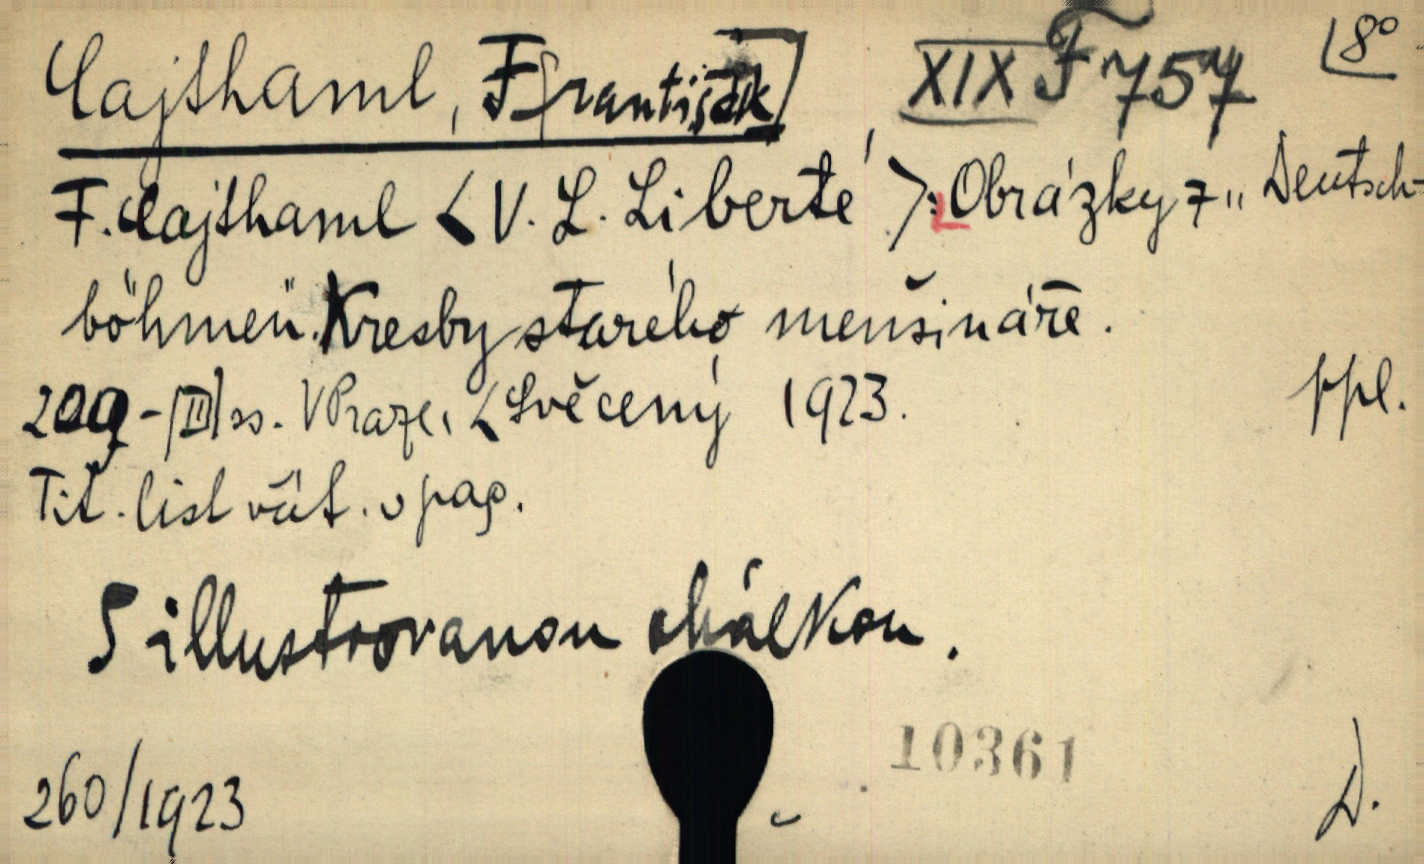 Cajthaml, F[rantišek] XIX F 757 8°
F. Cajthaml <V. L. Liberté>: Obrázky z „Deutsch-
böhmen". Kresby starého menšináře.
209-[III] ss. V Praze, <Svěcený 1923. ppl.
Tit. list váž. v pag.
S illustrovanou obálkou.
10361
260/1923 D.